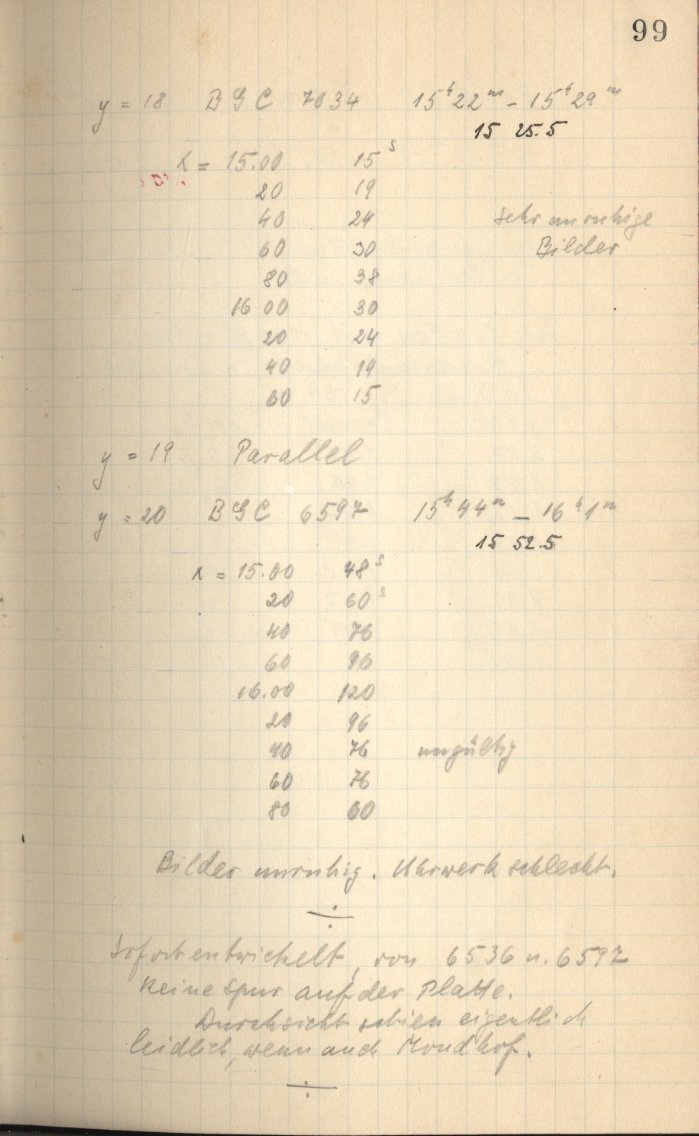 99
y = 18 BGC 7034 15ʰ22ᵐ – 15ʰ29ᵐ
15 25.5
x = 15.00 15ˢ
20 19
40 24 sehr unruhige
60 30 Bilder
80 38
16 00 30
20 24
40 19
60 15
y = 19 Parallel
y = 20 BGC 6597 15ʰ44ᵐ – 16ʰ1ᵐ
15 52.5
x = 15.00 48ˢ
20 60ˢ
40 76
60 96
16.00 120
20 96
40 76 ungültig
60 76
80 60
Bilder unruhig. Uhrwerk schlecht.
Sofort entwickelt, von 6536 u. 6597
keine Spur auf der Platte.
Durchsicht schien eigentlich
leidlich, wenn auch Mondhof.